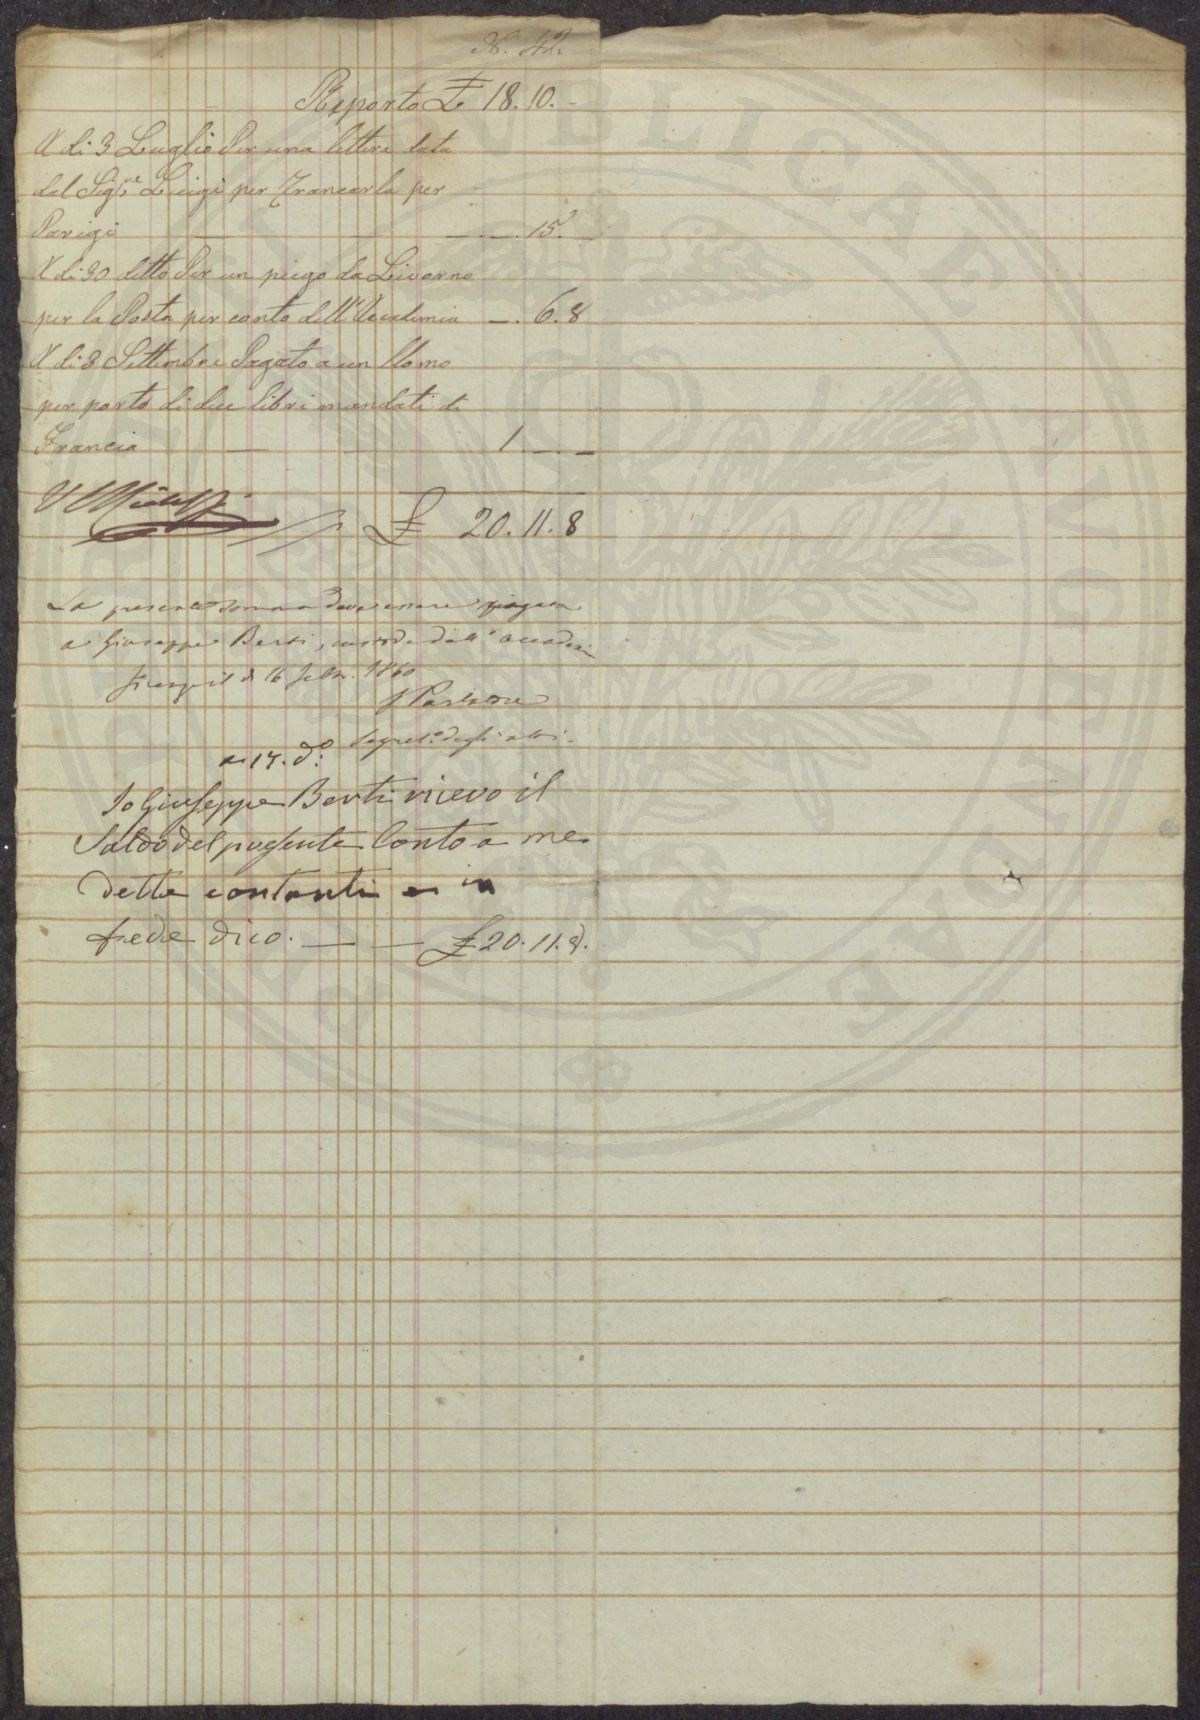 N. 42.
Reporto £ 18. 10. -
A di 3 Luglio Per una lettera data
dal Sig.re Luigi per Francarla per
Parigi — — . 15. —
A di 30 detto Per un piego da Livorno
per la Posta per conto dell'Accademia — . 6. 8
A di 3 Settembre Pagato a un Uomo
per porto di due libri mandati di
Francia — — 1 — . —
£ 20. 11. 8
La presente somma deve essere pagata
a Giuseppe Berti, custode dell'accademia
16 1860
Segret.o degli atti.
a 17. d.o
Io Giuseppe Berti ricevo il
Saldo del presente Conto a me
dette contanti in
fede dico. — — £ 20. 11. 8.
PUBLICAE